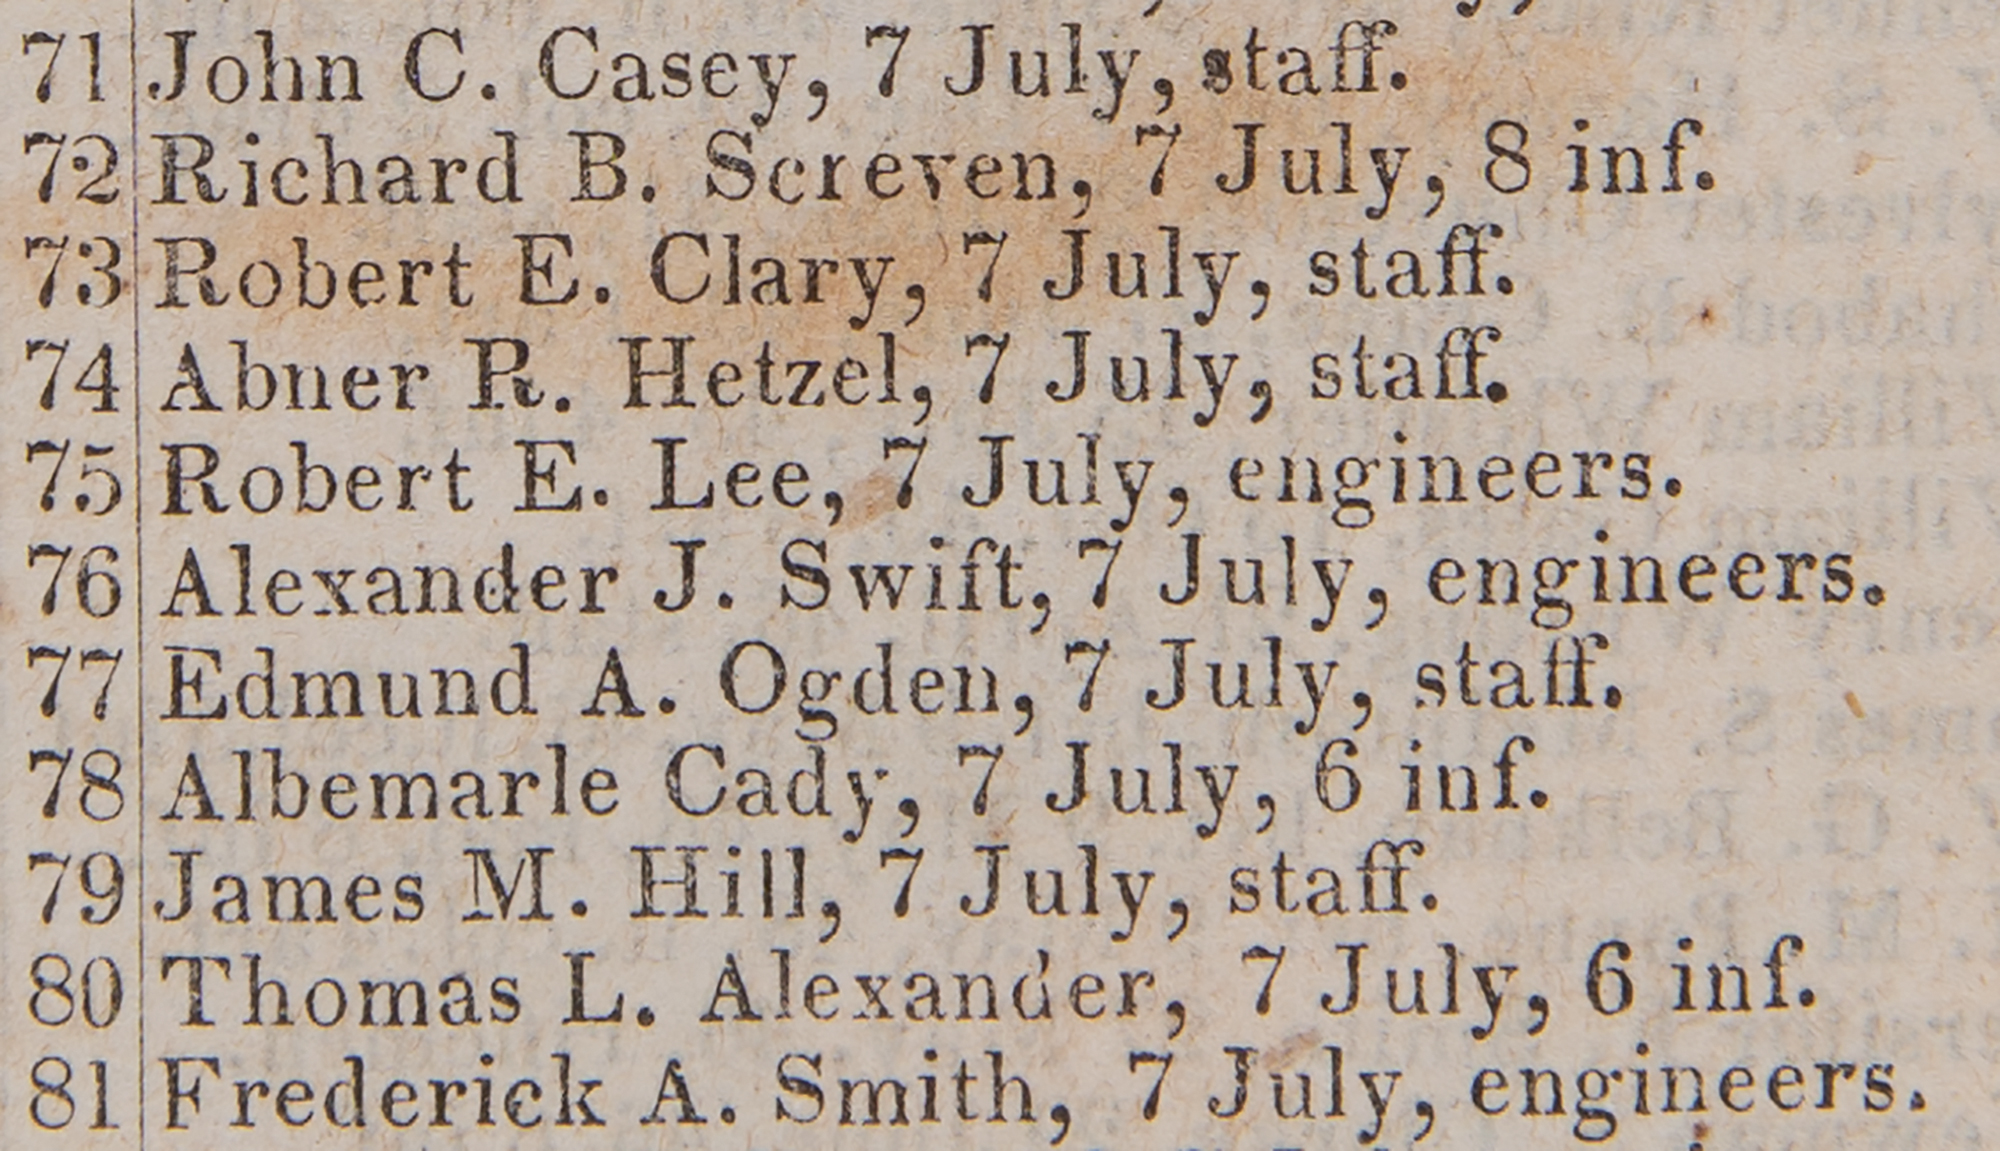 71 John C. Casey, 7 July, staff.
72 Richard B. Screven, 7 July, 8 inf.
73 Robert E. Clary, 7 July, staff.
74 Abner R. Hetzel, 7 July, staff.
75 Robert E. Lee, 7 July, engineers.
76 Alexander J. Swift, 7 July, engineers.
77 Edmund A. Ogden, 7 July, staff.
78 Albemarle Cady, 7 July, 6 inf.
79 James M. Hill, 7 July, staff.
80 Thomas L. Alexander, 7 July, 6 inf.
81 Frederick A. Smith, 7 July, engineers.